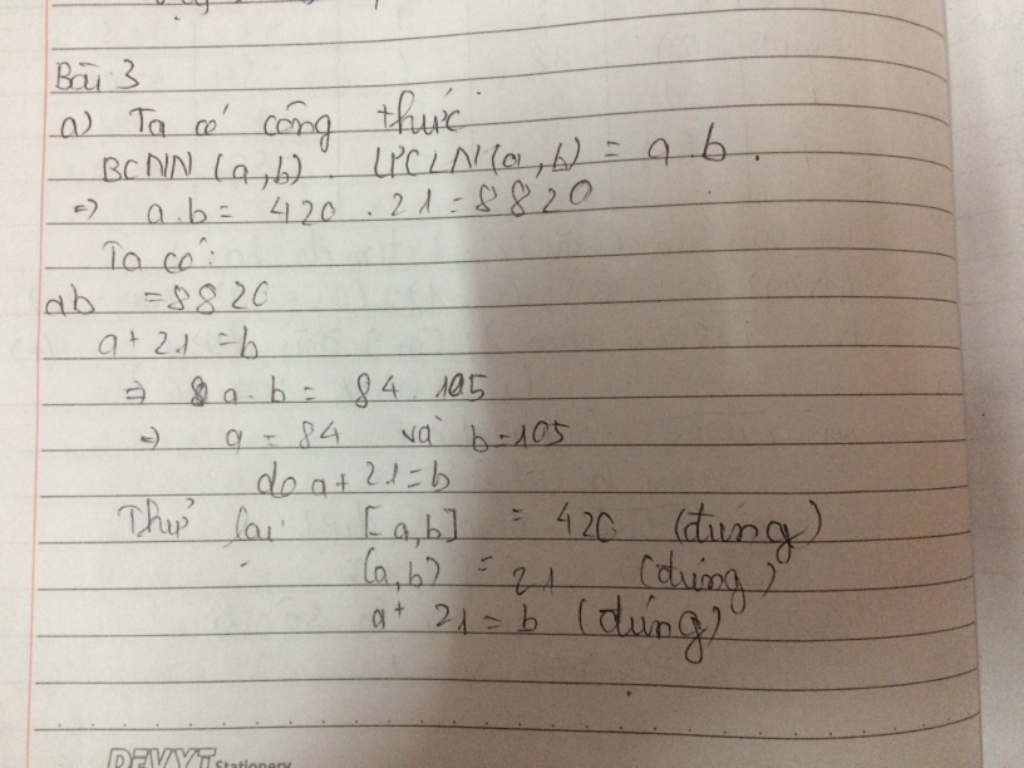 Bài 3
a) Ta có công thức
BCNN (a,b) . ƯCLN(a,b) = a.b.
=> a.b = 420 . 21 = 8820
Ta có:
ab = 8820
a + 21 = b
=> a.b = 84.105
=> a = 84 và b = 105
do a + 21 = b
Thử lại [a,b] = 420 (đúng)
(a,b) = 21 (đúng)
a + 21 = b (đúng)
DEVYT Stationery